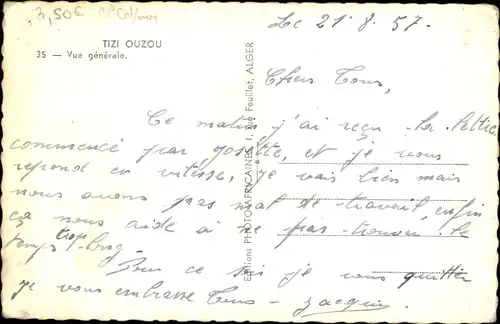 3,50€
Le 21.8.57.
TIZI OUZOU
35 — Vue générale.
Editions PHOTO-AFRICAINES, Fouillet, ALGER
Chers Tous,
Ce matin j'ai reçu la lettre
commencé par Josette, et je vous
repond en vitesse, je vais bien mais
nous avons pas mal de travail, enfin
ça nous aide à ne pas trouver le
temps trop long.
Pour ce soir je vous quitte
je vous embrasse Tous - Jacques.